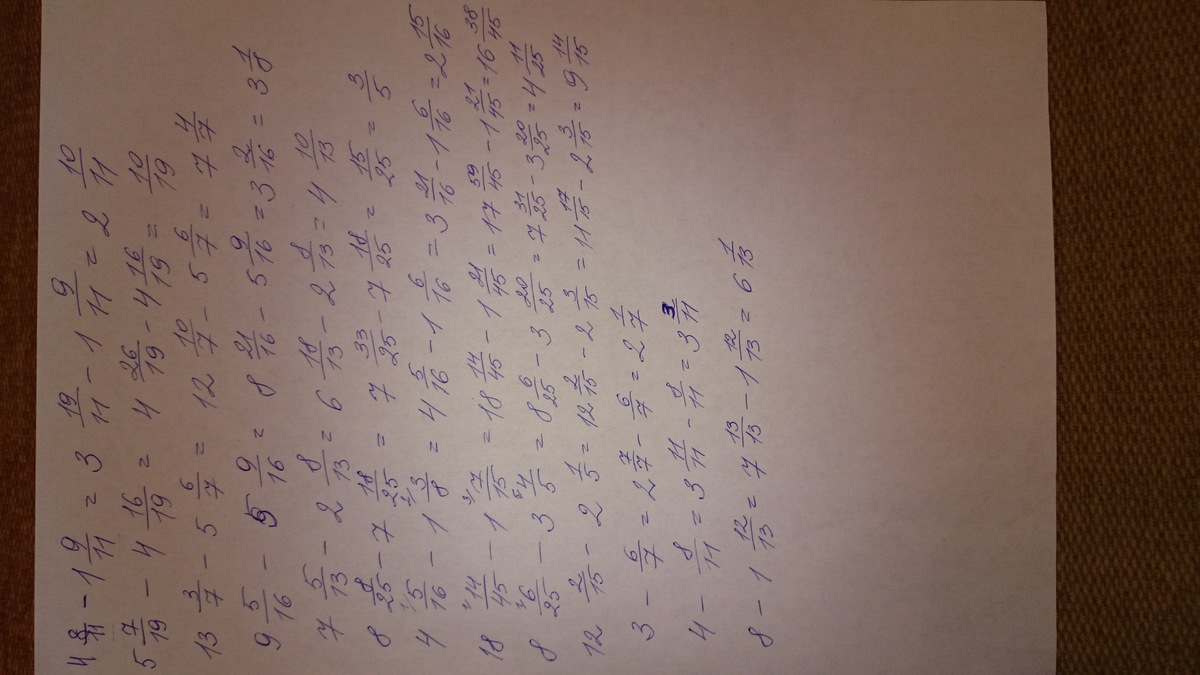 4 8/11 - 1 9/11 = 3 19/11 - 1 9/11 = 2 10/11
5 7/19 - 4 16/19 = 4 26/19 - 4 16/19 = 10/19
13 3/7 - 5 6/7 = 12 10/7 - 5 6/7 = 7 4/7
9 5/16 - 5 9/16 = 8 21/16 - 5 9/16 = 3 2/16 = 3 1/8
7 5/13 - 2 8/13 = 6 18/13 - 2 8/13 = 4 10/13
8 8/25 - 7 18/25 = 7 33/25 - 7 18/25 = 15/25 = 3/5
4 5/16 - 1 3/8 = 4 5/16 - 1 6/16 = 3 21/16 - 1 6/16 = 2 15/16
18 14/45 - 1 7/15 = 18 14/45 - 1 21/45 = 17 59/45 - 1 21/45 = 16 38/45
8 6/25 - 3 4/5 = 8 6/25 - 3 20/25 = 7 31/25 - 3 20/25 = 4 11/25
12 2/15 - 2 1/5 = 12 2/15 - 2 3/15 = 11 17/15 - 2 3/15 = 9 14/15
3 - 6/7 = 2 7/7 - 6/7 = 2 1/7
4 - 8/11 = 3 11/11 - 8/11 = 3 3/11
8 - 1 12/13 = 7 13/13 - 1 12/13 = 6 1/13